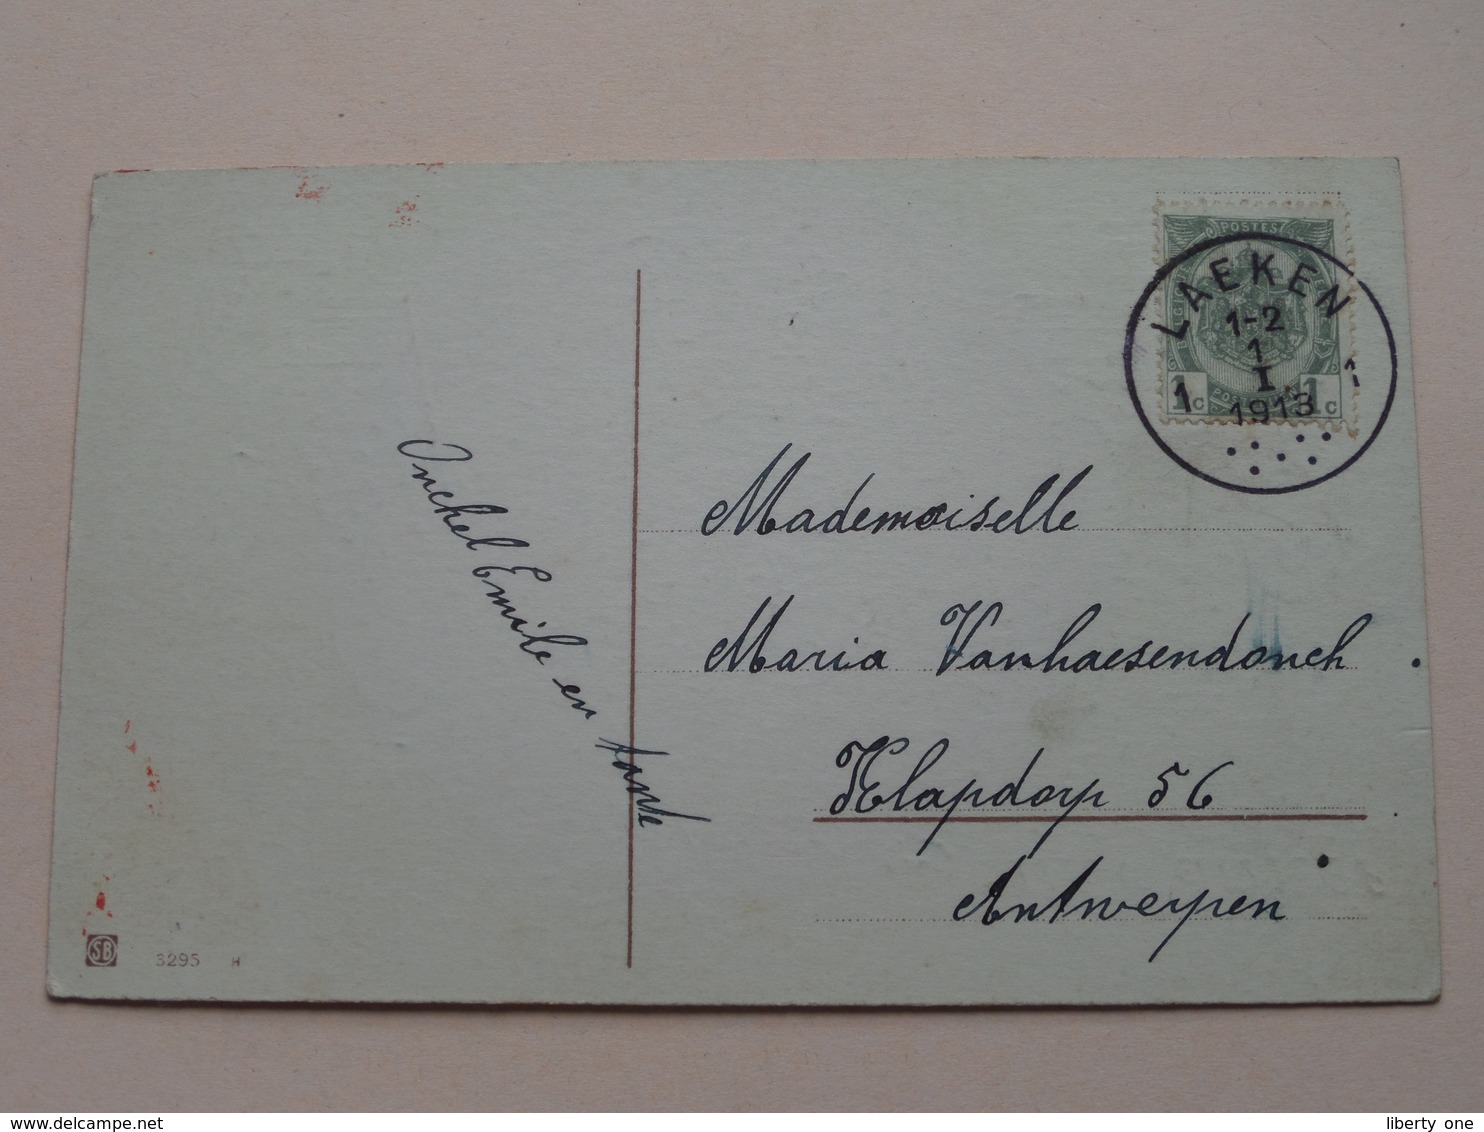 POSTES
LAEKEN
1-2
1
I
1913
1 1
1c 1c
Onckel Emile en tante
Mademoiselle
Maria Vanhaesendonck.
Klapdorp 56
Antwerpen
SB 3295 H
www.delcampe.net
liberty one